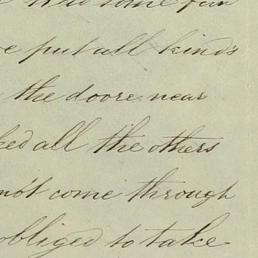 some fun
put all kinds
the doore near
ked all the others
not come through
obliged to take